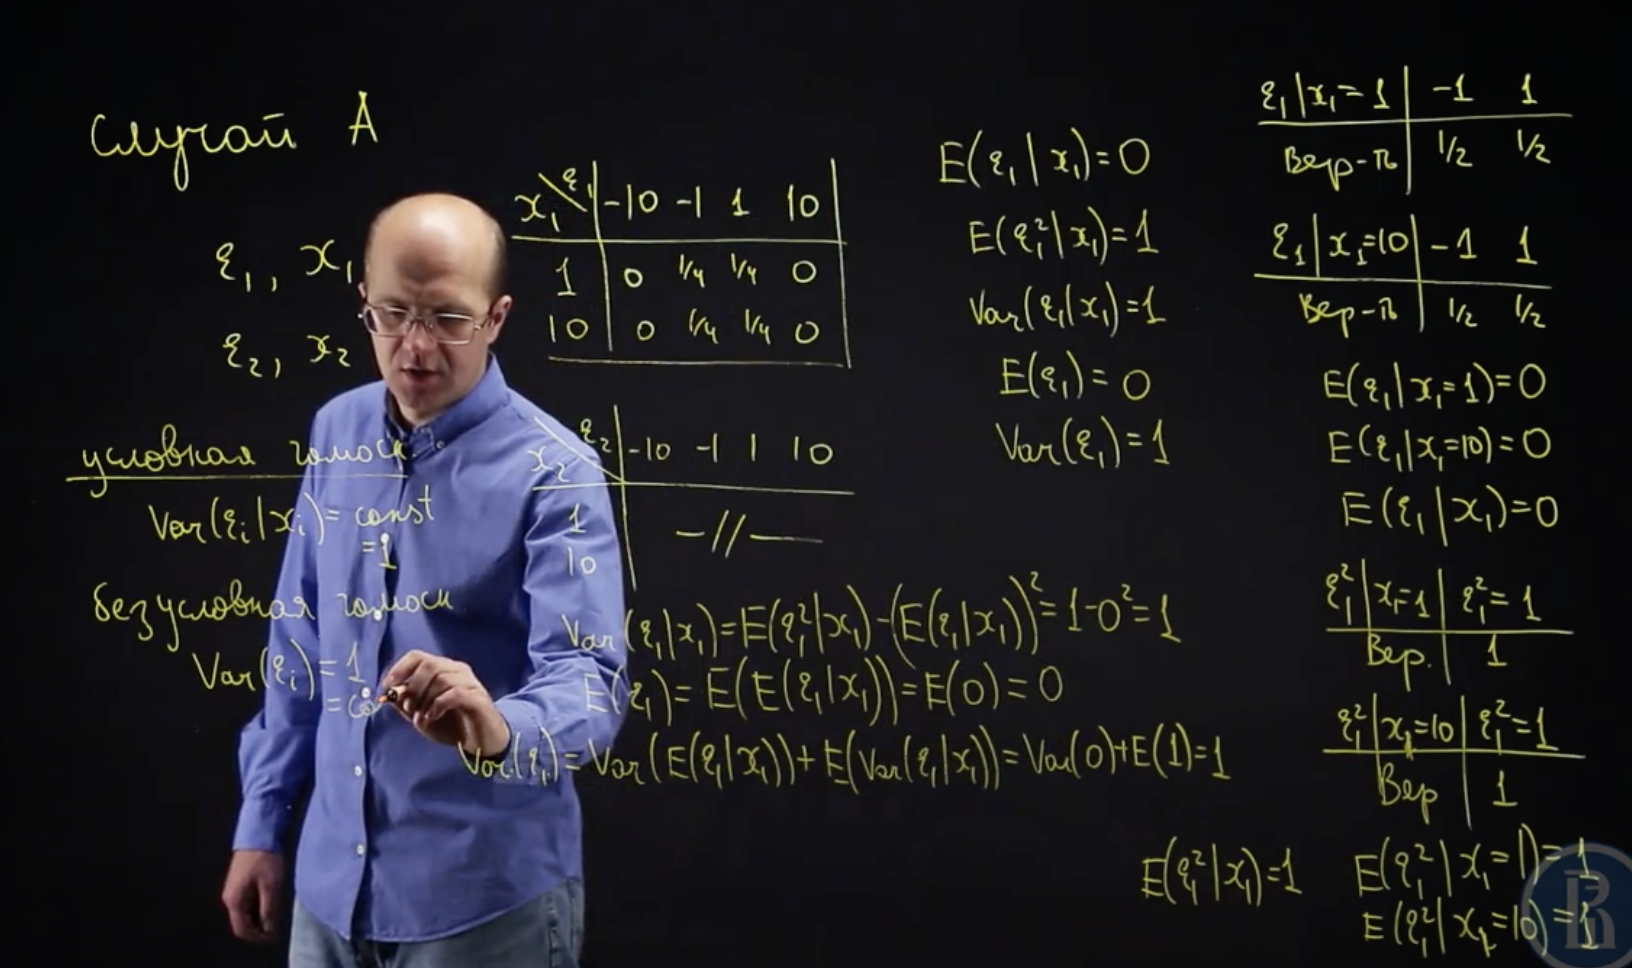 Случай А
ε₁, x₁
ε₂, x₂
условная гомоск.
Var(εᵢ|xᵢ) = const
= 1
безусловная гомоск.
Var(εᵢ) = 1
= co
x₁ \ ε₁ | -10 -1 1 10
1 | 0 1/4 1/4 0
10 | 0 1/4 1/4 0
x₂ \ ε₂ | -10 -1 1 10
1
10
—//—
Var(ε₁|x₁) = E(ε₁²|x₁) - (E(ε₁|x₁))² = 1 - 0² = 1
E(ε₁) = E(E(ε₁|x₁)) = E(0) = 0
Var(ε₁) = Var(E(ε₁|x₁)) + E(Var(ε₁|x₁)) = Var(0) + E(1) = 1
E(ε₁|x₁) = 0
E(ε₁²|x₁) = 1
Var(ε₁|x₁) = 1
E(ε₁) = 0
Var(ε₁) = 1
ε₁|x₁ = 1 | -1 1
Вер-ть | 1/2 1/2
ε₁|x₁=10 | -1 1
Вер-ть | 1/2 1/2
E(ε₁|x₁=1) = 0
E(ε₁|x₁=10) = 0
E(ε₁|x₁) = 0
ε₁²|x₁=1 | ε₁² = 1
Вер. | 1
ε₁²|x₁=10 | ε₁² = 1
Вер | 1
E(ε₁²|x₁) = 1
E(ε₁²|x₁=1) = 1
E(ε₁²|x₁=10) = 1